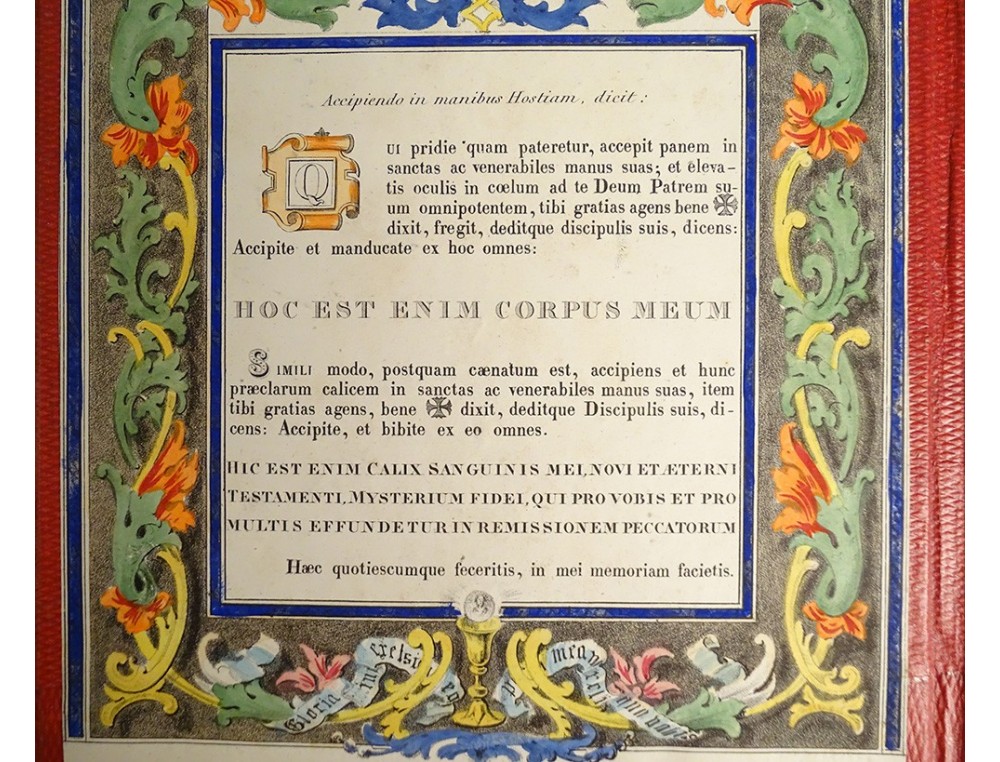 Accipiendo in manibus Hostiam, dicit:
QUI pridie quam pateretur, accepit panem in
sanctas ac venerabiles manus suas; et eleva-
tis oculis in cœlum ad te Deum Patrem su-
um omnipotentem, tibi gratias agens bene ✠
dixit, fregit, deditque discipulis suis, dicens:
Accipite et manducate ex hoc omnes:
HOC EST ENIM CORPUS MEUM
SIMILI modo, postquam cænatum est, accipiens et hunc
præclarum calicem in sanctas ac venerabiles manus suas, item
tibi gratias agens, bene ✠ dixit, deditque Discipulis suis, di-
cens: Accipite, et bibite ex eo omnes.
HIC EST ENIM CALIX SANGUINIS MEI, NOVI ET ÆTERNI
TESTAMENTI, MYSTERIUM FIDEI, QUI PRO VOBIS ET PRO
MULTIS EFFUNDETUR IN REMISSIONEM PECCATORUM
Hæc quotiescumque feceritis, in mei memoriam facietis.
Gloria in exelsi